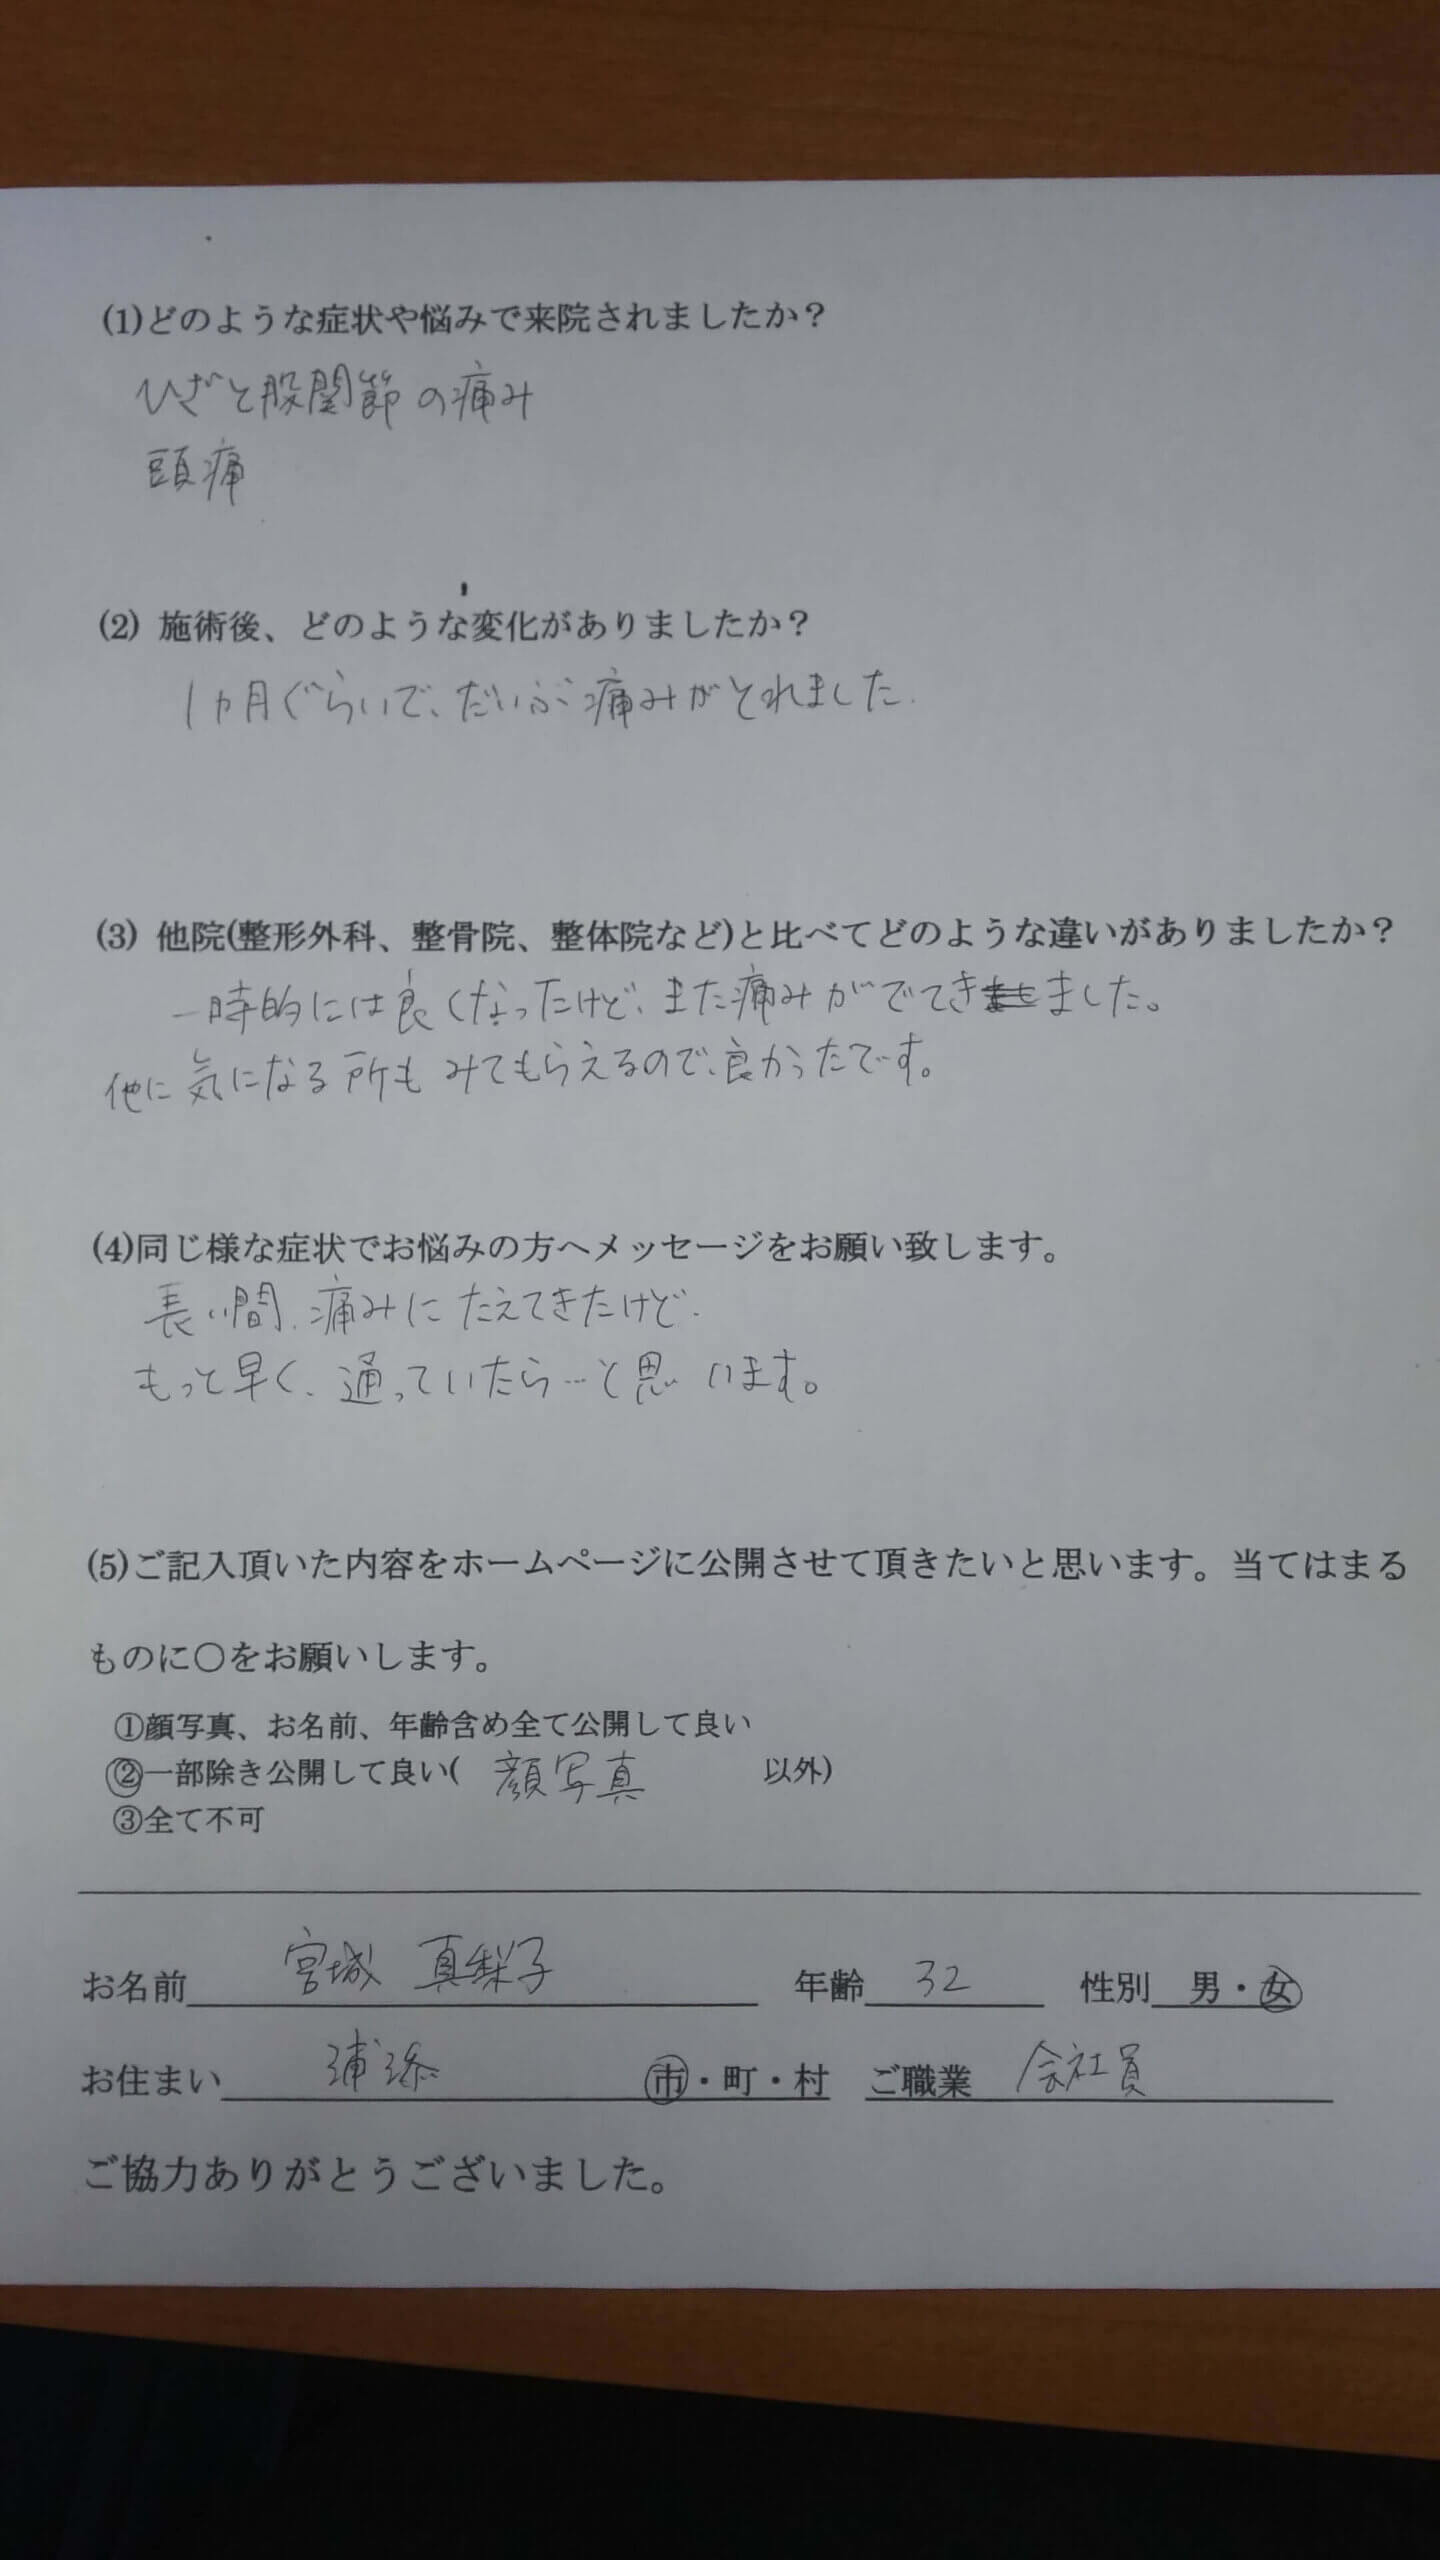 (1)どのような症状や悩みで来院されましたか？
ひざと股関節の痛み
頭痛
(2) 施術後、どのような変化がありましたか？
1ヵ月ぐらいで、だいぶ痛みがとれました.
(3) 他院(整形外科、整骨院、整体院など)と比べてどのような違いがありましたか？
一時的には良くなったけど、また痛みがでてきました。
他に気になる所もみてもらえるので、良かったです。
(4)同じ様な症状でお悩みの方へメッセージをお願い致します。
長い間、痛みにたえてきたけど、
もっと早く、通っていたら…と思います。
(5)ご記入頂いた内容をホームページに公開させて頂きたいと思います。当てはまる
ものに〇をお願いします。
①顔写真、お名前、年齢含め全て公開して良い
②一部除き公開して良い( 顔写真 以外)
③全て不可
お名前 宮城 真梨子 年齢 32 性別 男・女
お住まい 浦添 市・町・村 ご職業 会社員
ご協力ありがとうございました。